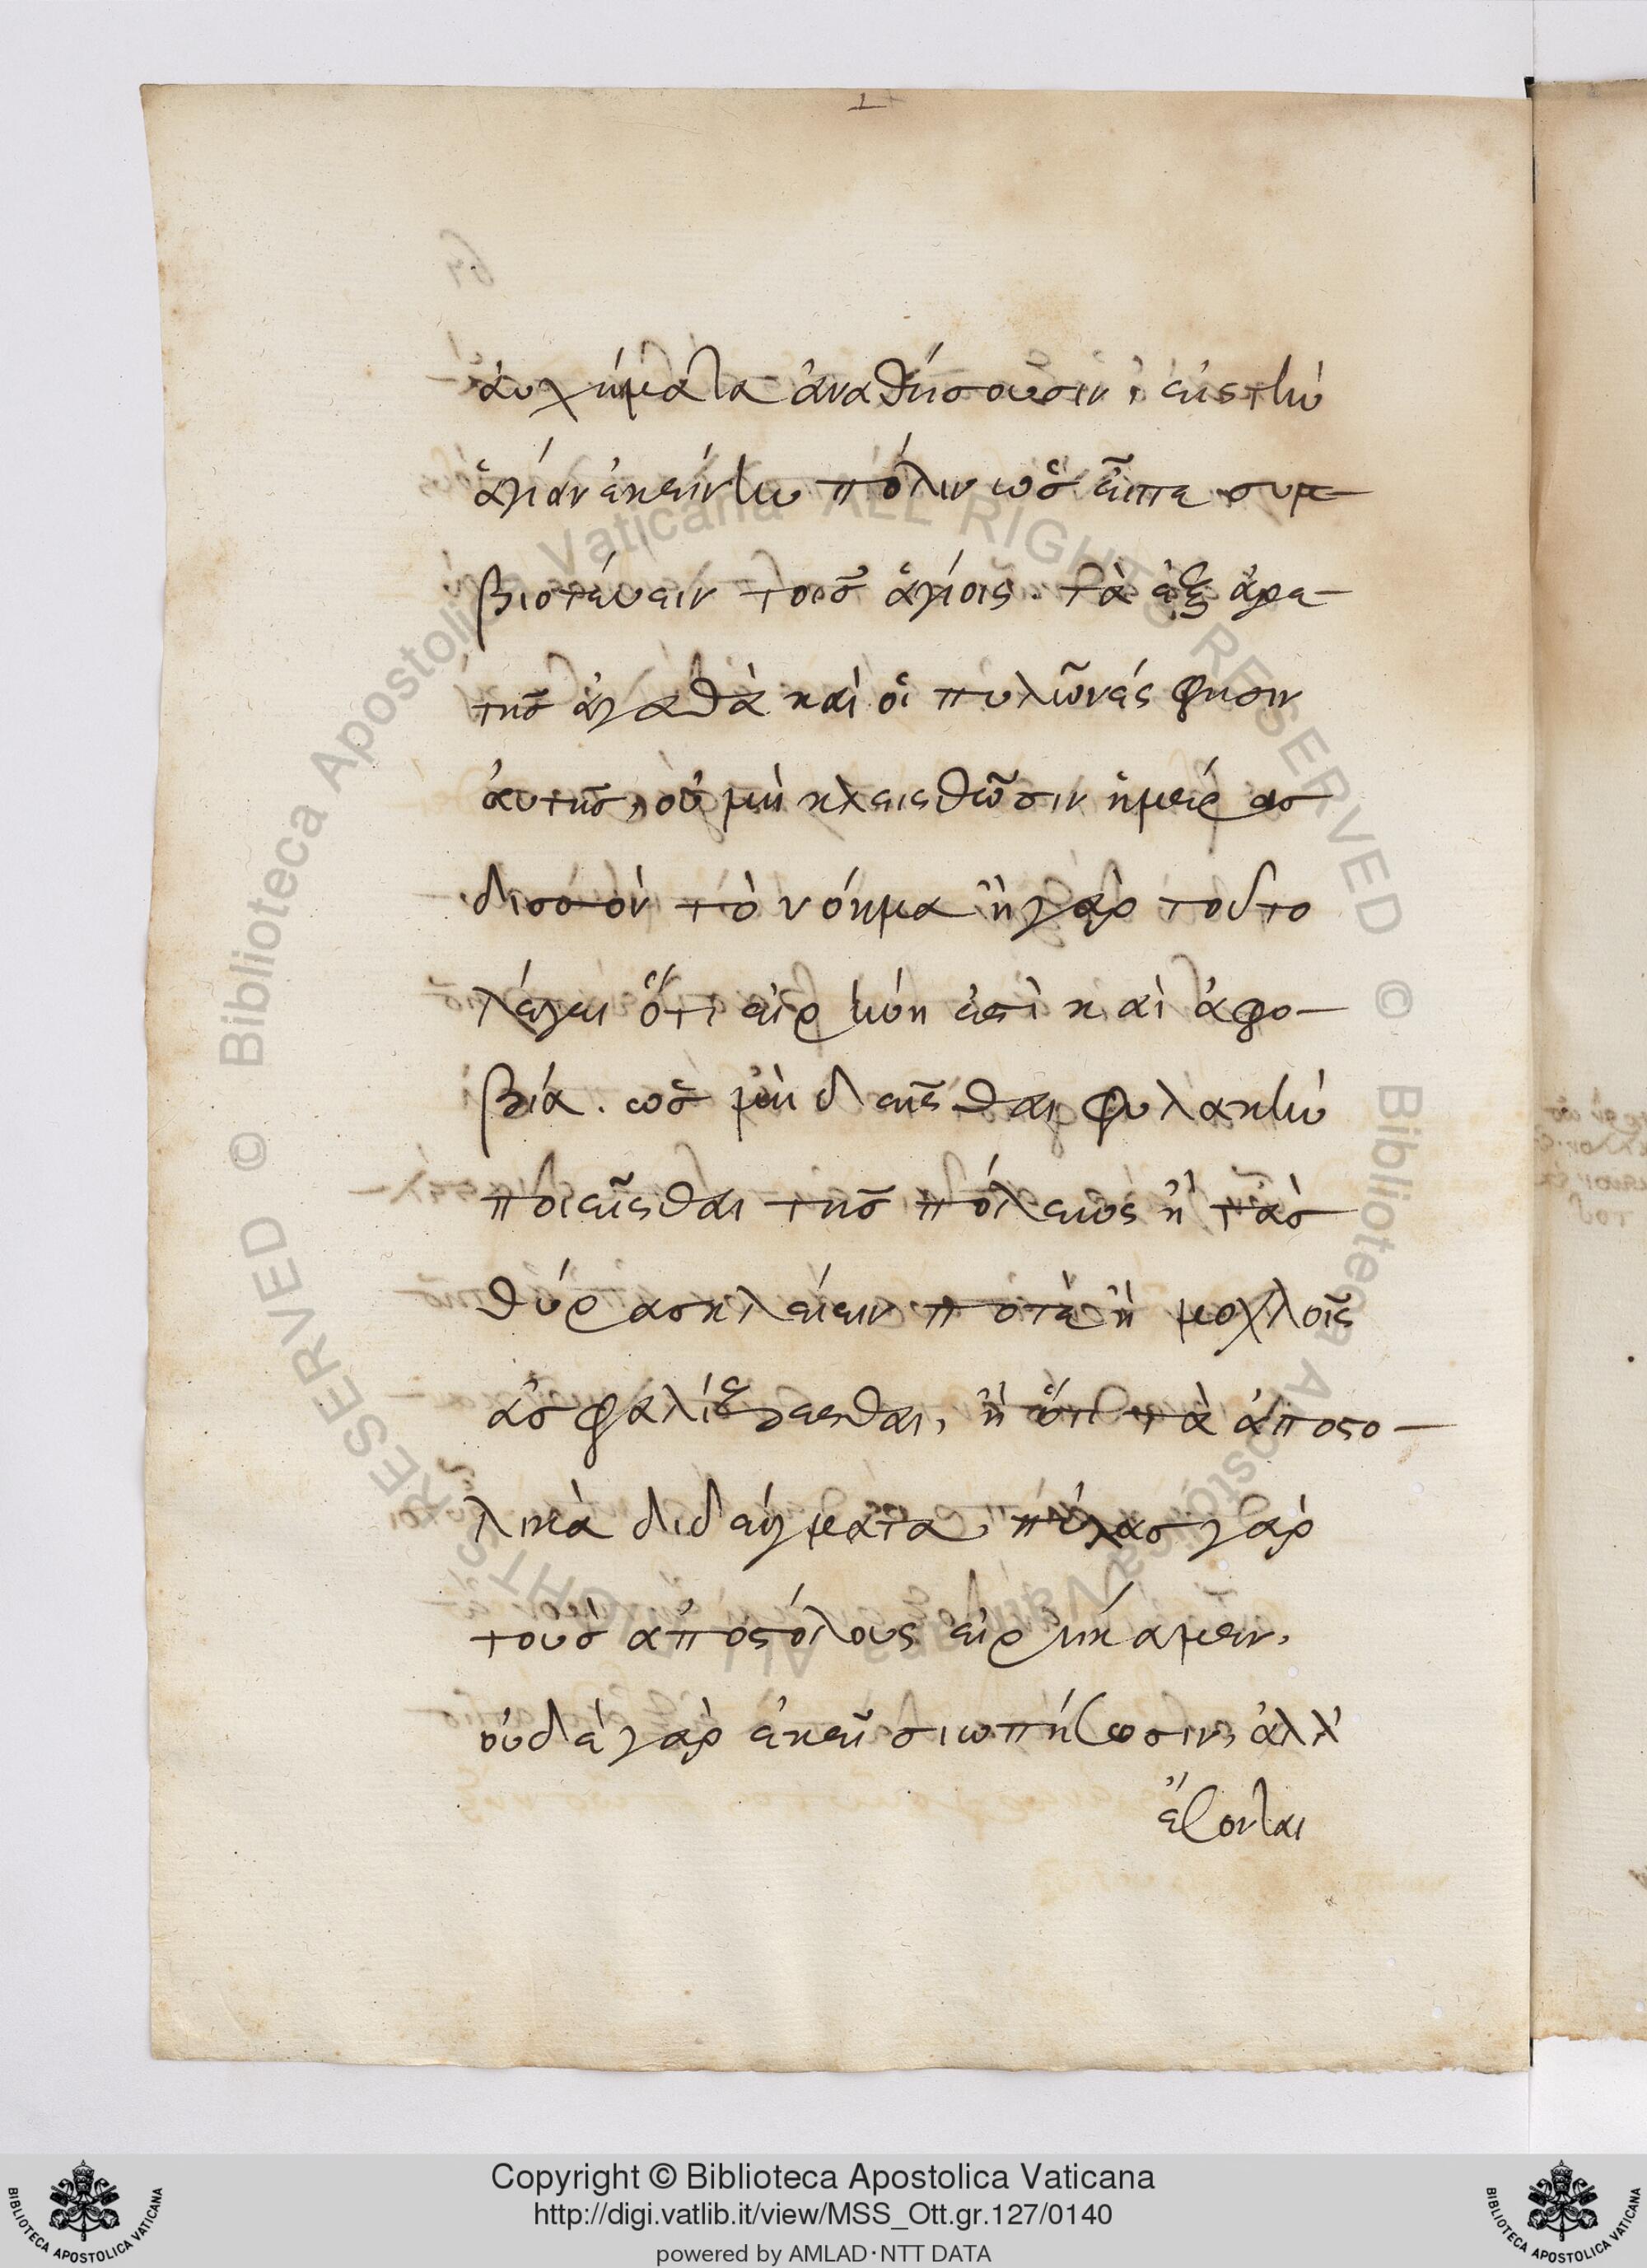 αὐχήματα ἀναθήσουσιν, εἰς τὴν
ἁγίαν ἐκείνην πόλιν ὡς εἶπε συμ-
βιοτεύειν τοῖς ἁγίοις. τὰ ἐξ ἀρε-
τῆς ἀγαθὰ καὶ οἱ πυλῶνές φησιν
αὐτῆς, οὐ μὴ κλεισθῶσιν ἡμέρας
δισσὸν τὸ νόημα ἢ γὰρ τοῦτο
λέγει ὅτι εἰρήνη ἐστὶ καὶ ἀφο-
βία. ὡς μὴ δεῖσθαι φυλακὴν
ποιεῖσθαι τῆς πόλεως ἢ τὰς
θύρας κλείειν ποτὲ ἢ μοχλοῖς
ἀσφαλίζεσθαι, ἢ ὅτι τὰ ἀποστο-
λικὰ διδάγματα, πύλας γὰρ
τοὺς ἀποστόλους εἰρήκαμεν,
οὐδὲ γὰρ ἐκεῖ σιωπήσωσιν, ἀλλ'
ἔσονται
Copyright © Biblioteca Apostolica Vaticana
http://digi.vatlib.it/view/MSS_Ott.gr.127/0140
powered by AMLAD·NTT DATA
BIBLIOTECA APOSTOLICA VATICANA
BIBLIOTECA APOSTOLICA VATICANA
© Biblioteca Apostolica Vaticana ALL RIGHTS RESERVED
© Biblioteca Apostolica Vaticana ALL RIGHTS RESERVED